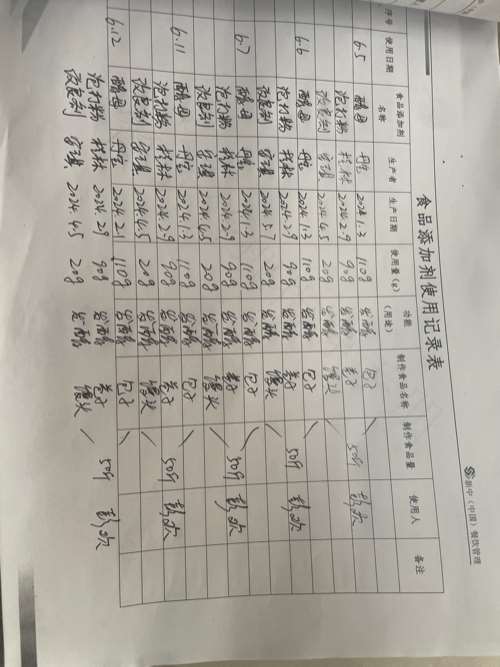 新中（中国）餐饮管理
食品添加剂使用记录表
序号 使用日期 食品添加剂名称 生产者 生产日期 使用量(g) 功能(用途) 制作食品名称 制作食品量 使用人 备注
6.5 酵母 2024.1.3 110g 发酵 包子
泡打粉 2024.2.9 90g 发酵 卷子 50斤
改良剂 2024.4.5 20g 发酵 馒头
6.6 酵母 2024.1.3 110g 发酵 包子
泡打粉 2024.2.9 90g 发酵 卷子 50斤
改良剂 20g 发酵 馒头
6.7 酵母 2024.1.3 110g 发酵 包子
泡打粉 2024.2.9 90g 发酵 卷子 50斤
改良剂 2024.4.5 20g 发酵 馒头
6.11 酵母 2024.1.3 110g 发酵 包子
泡打粉 2024.2.9 90g 发酵 卷子 50斤
改良剂 2024.4.5 20g 发酵 馒头
6.12 酵母 2024.2.1 110g 发酵 包子
泡打粉 2024.2.9 90g 发酵 卷子 50斤
改良剂 2024.4.5 20g 发酵 馒头